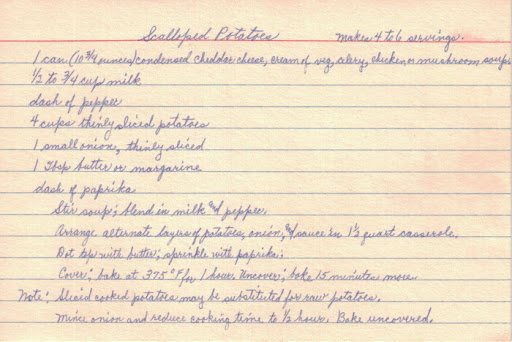 Scalloped Potatoes makes 4 to 6 servings.
1 can (10 3/4 ounces) condensed cheddar cheese, cream of veg, celery, chicken or mushroom soup
1/2 to 3/4 cup milk
dash of pepper
4 cups thinly sliced potatoes
1 small onion, thinly sliced
1 Tbsp butter or margarine
dash of paprika
Stir soup; blend in milk and pepper.
Arrange alternate layers of potatoes, onion, and sauce in 1 1/2 quart casserole.
Dot top with butter; sprinkle with paprika;
Cover; bake at 375°F for 1 hour. Uncover; bake 15 minutes more.
Note: Sliced cooked potatoes may be substituted for raw potatoes.
Mince onion and reduce cooking time to 1/2 hour. Bake uncovered.